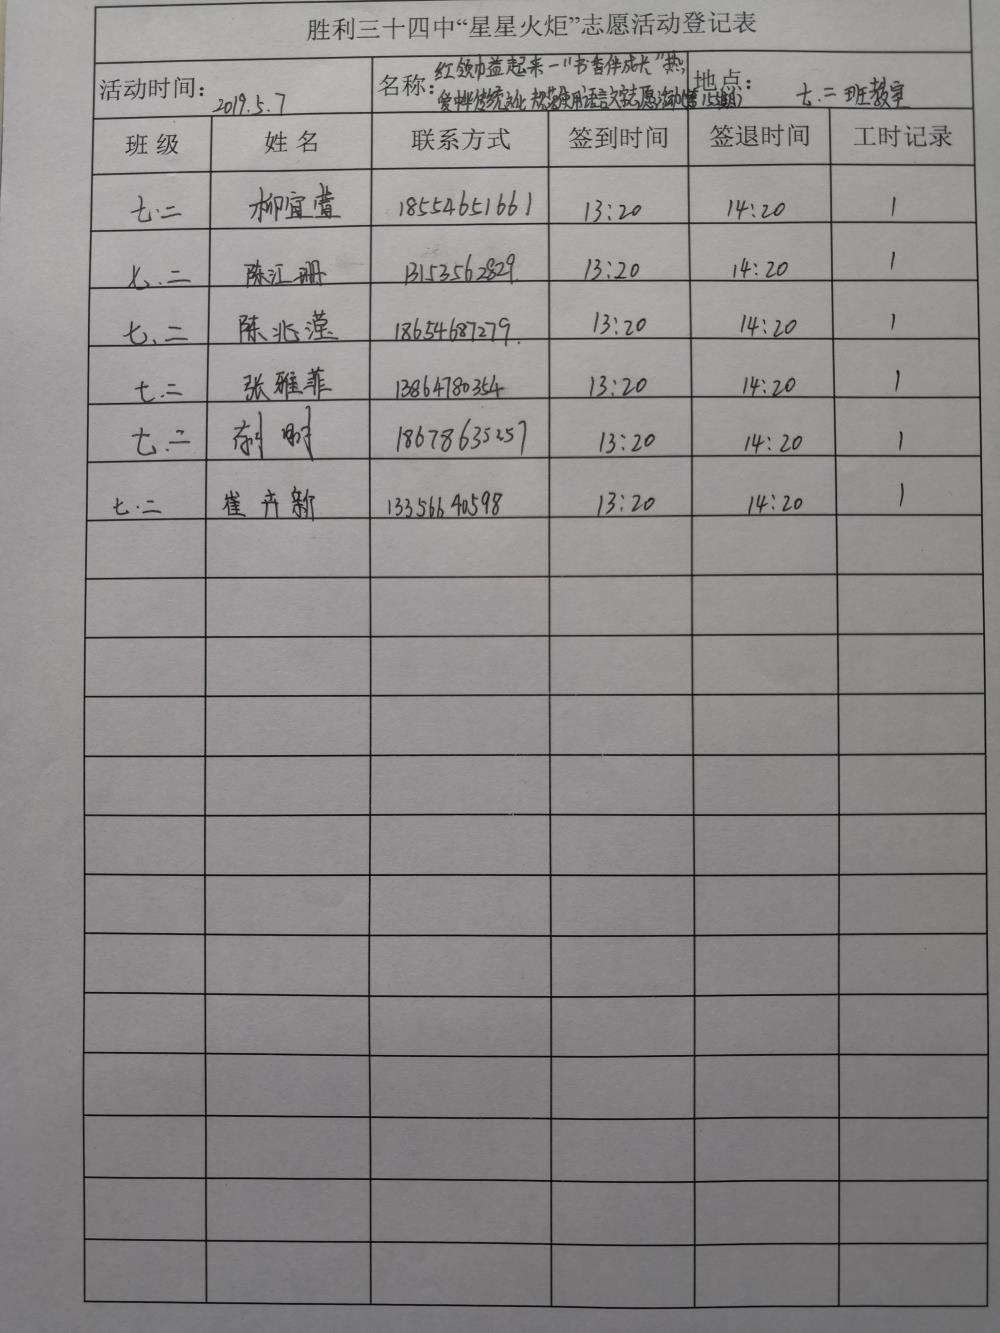 胜利三十四中“星星火炬”志愿活动登记表
活动时间：2019.5.7 名称：红领巾益起来—“书香伴成长”热 地点：七.二班教室
爱中华传统文化 规范使用语言文字志愿活动(第15期)
班 级 姓 名 联系方式 签到时间 签退时间 工时记录
七.二 柳宜萱 18554651661 13:20 14:20 1
七.二 陈江珊 13153562829 13:20 14:20 1
七.二 陈兆滢 18654687279 13:20 14:20 1
七.二 张雅菲 13864780354 13:20 14:20 1
七.二 18678635257 13:20 14:20 1
七.二 崔卉新 13356640598 13:20 14:20 1